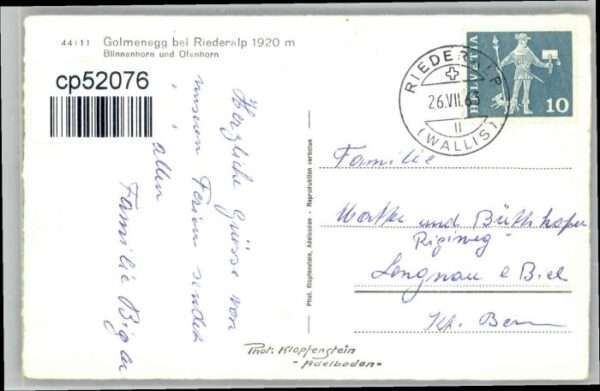 44:11 Golmenegg bei Riederalp 1920 m
Blinnenhorn und Ofenhorn
cp52076
Herzliche Grüsse von
unseren Ferien sendet
allen
Familie Bigler
Phot. Klopfenstein, Adelboden - Reproduktion verboten
Phot. Klopfenstein
- Adelboden -
RIEDERALP
26.VII.63
(WALLIS)
HELVETIA
10
Familie
und
Rigiweg
Lengnau b Biel
Kt. Bern